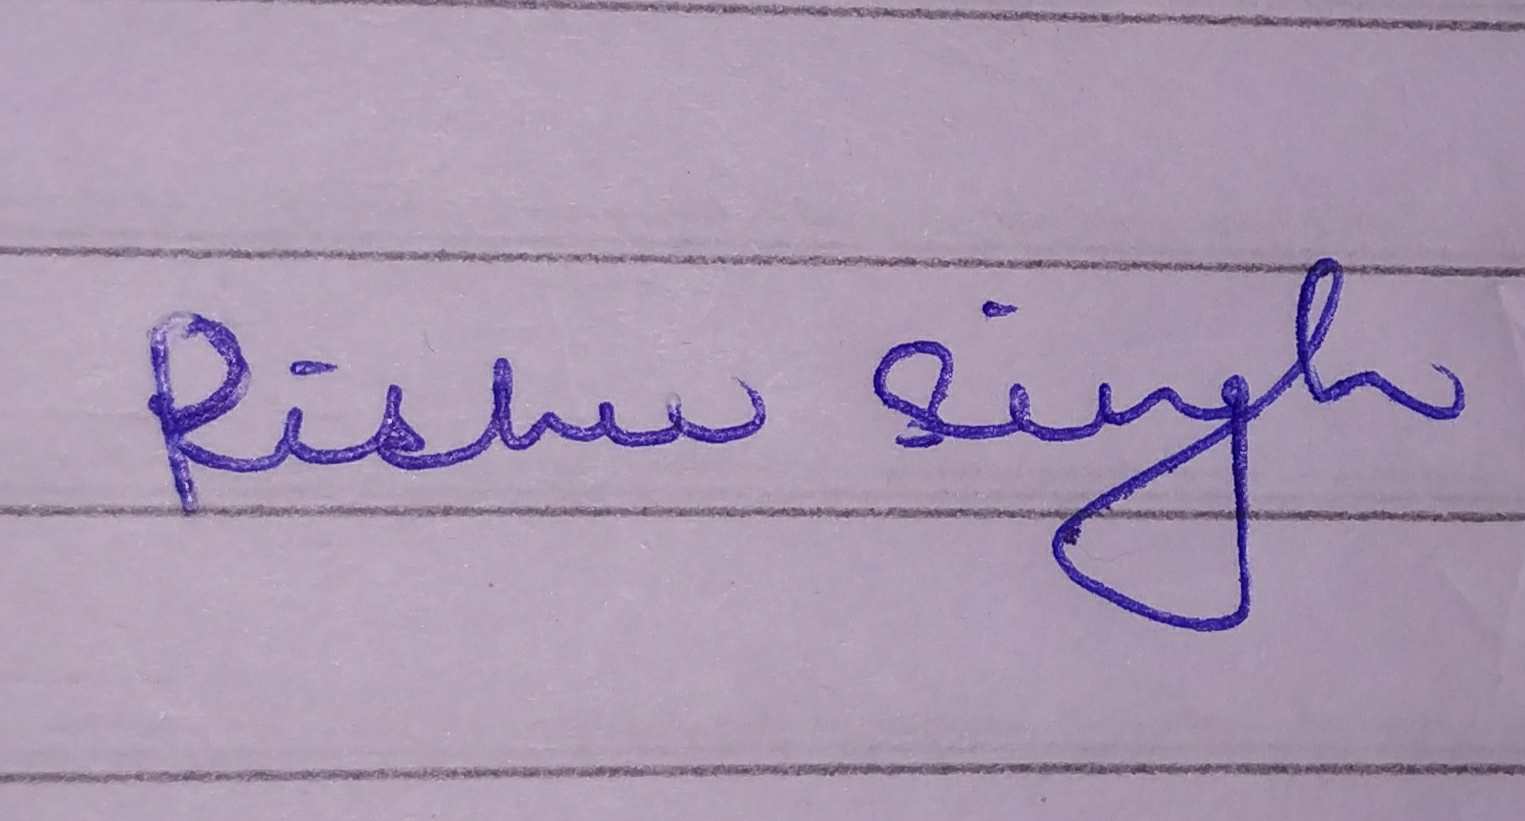 Rishu Singh